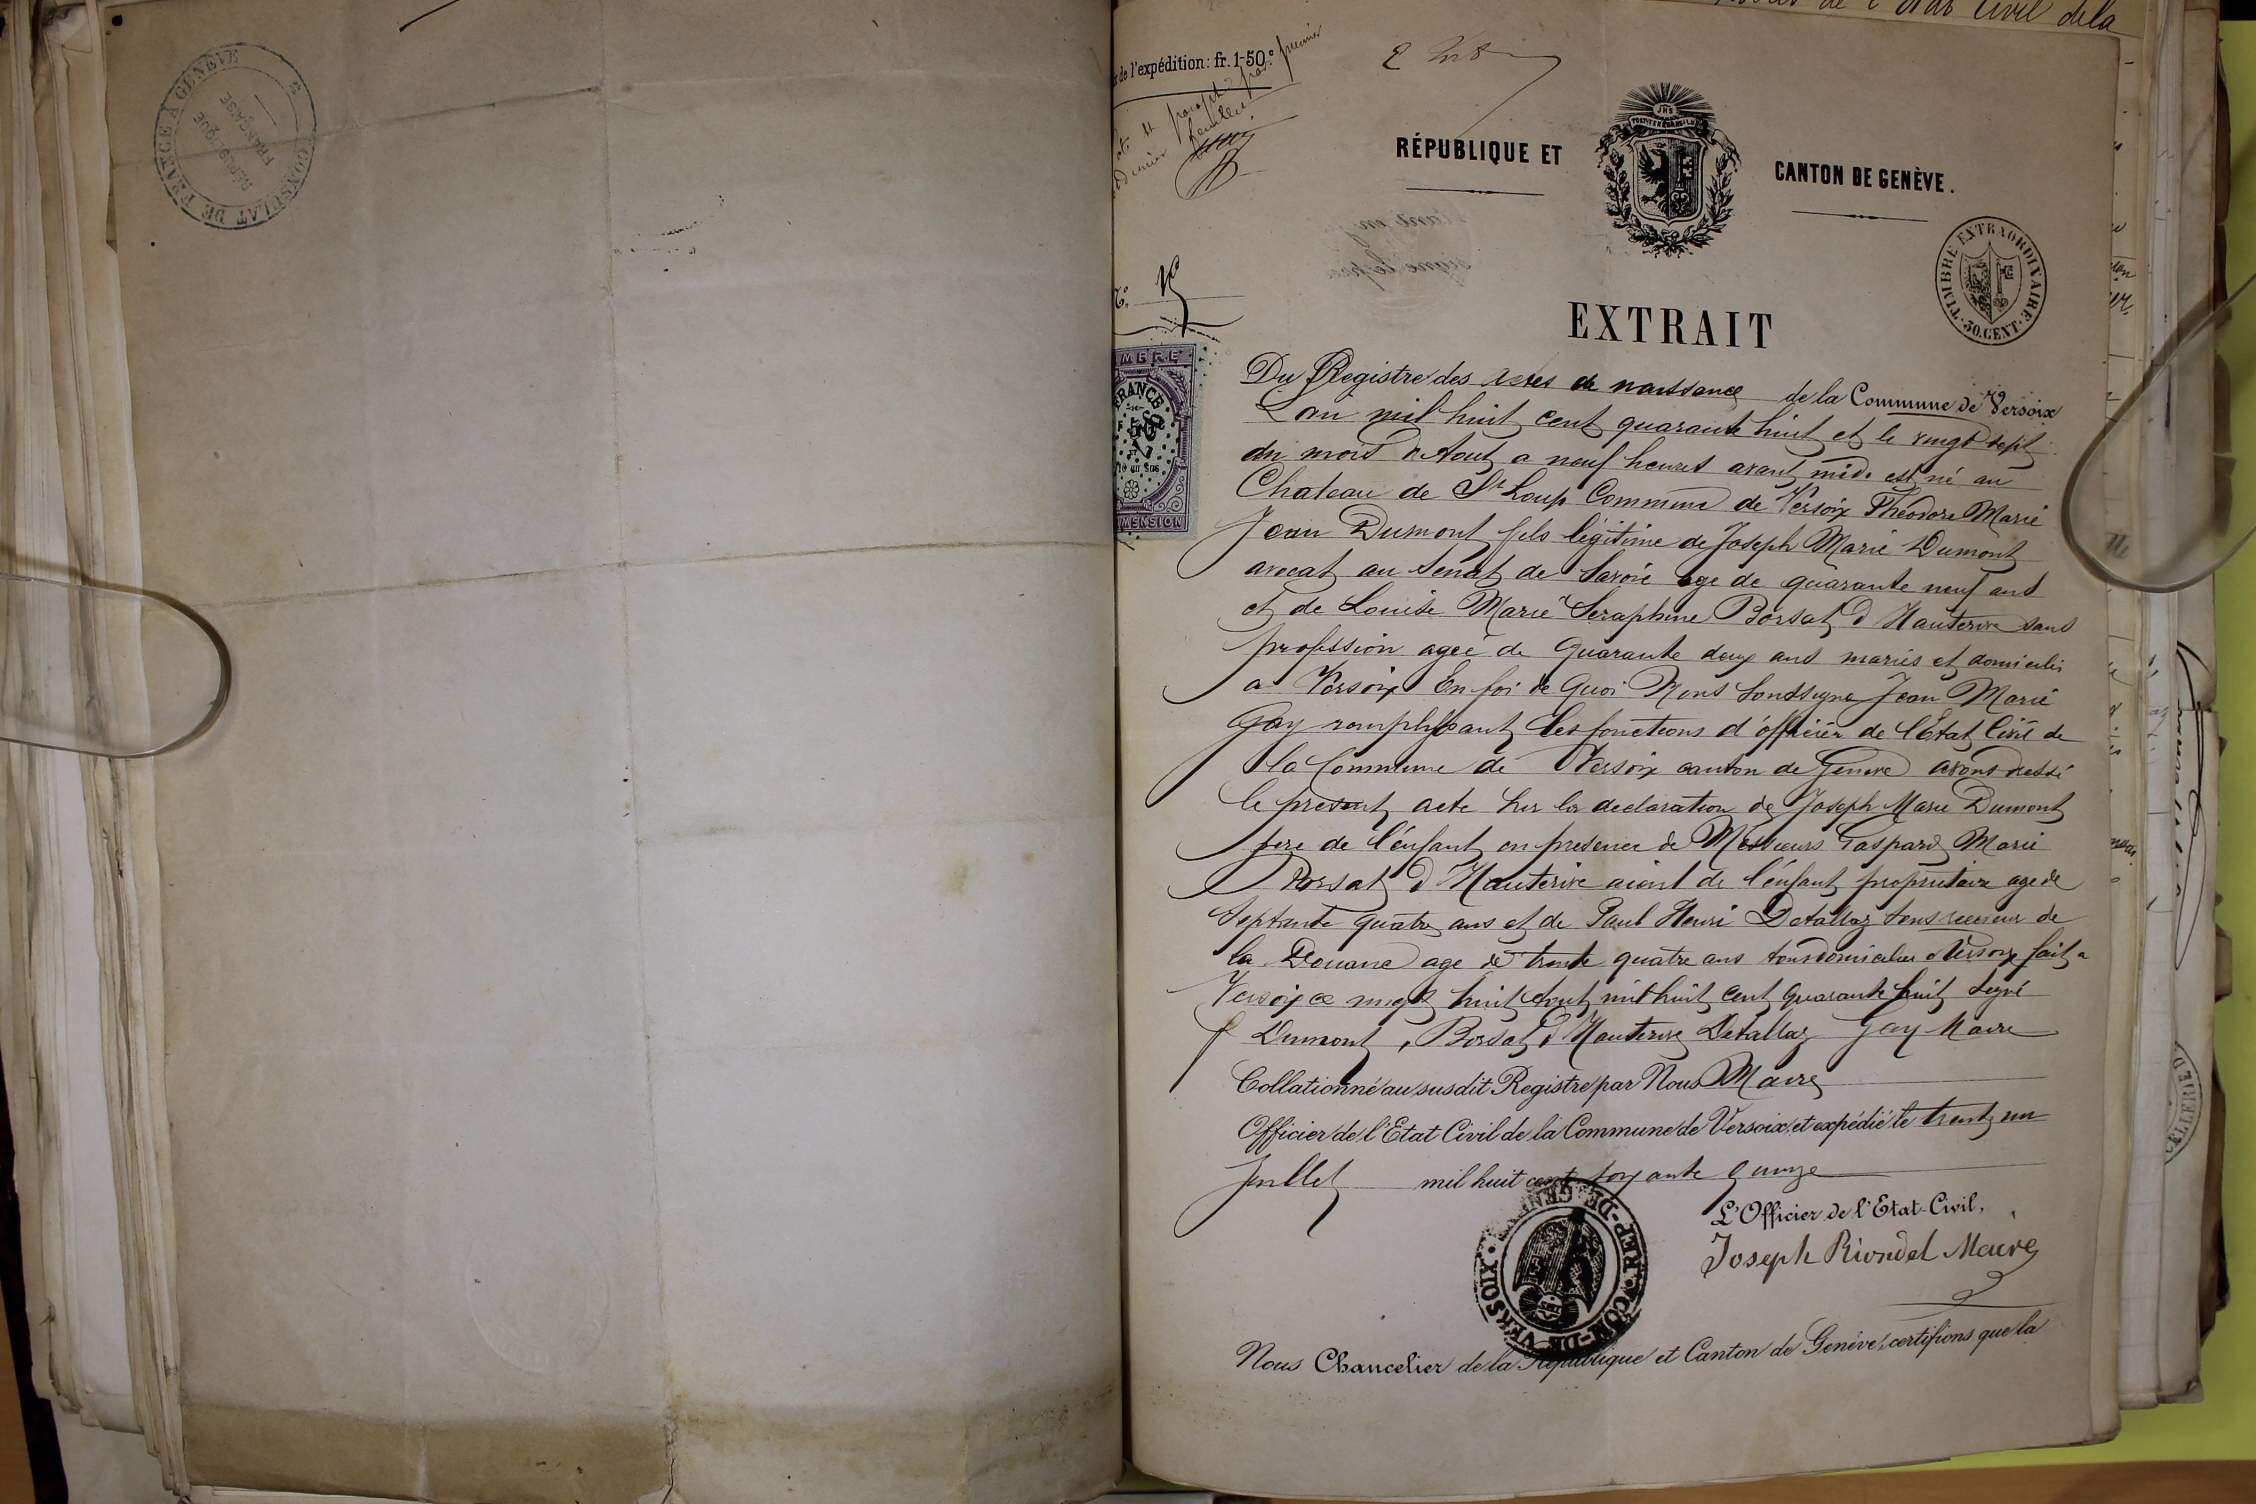 CONSULAT DE FRANCE A GENÈVE
RÉPUBLIQUE
FRANÇAISE
de l'Etat Civil de la
de l'expédition: fr. 1-50c
RÉPUBLIQUE ET
CANTON DE GENÈVE.
TIMBRE EXTRAORDINAIRE
30. CENT.
FRANCE
EXTRAIT
Du Registre des actes de naissance de la Commune de Versoix
L'an mil huit cent quarante huit et le vingt sept
du mois d'Aout a neuf heures avant midi est né au
Chateau de St Loup Commune de Versoix Théodore Marie
Jean Dumont fils légitime de Joseph Marie Dumont
avocat au Senat de Savoie age de quarante neuf ans
et de Louise Marie Seraphine Borsat d'Hauterive sans
profession agée de Quarante deux ans mariés et domicilés
a Versoix En foi de Quoi Nous Soussigné Jean Marie
Gay remplissant les fonctions d'officier de l'Etat Civil de
la Commune de Versoix canton de Geneve avons dressé
le present acte sur la declaration de Joseph Marie Dumont
pere de l'enfant en presence de Messieurs Gaspard Marie
Borsat d'Hauterive aieul de l'enfant propriétaire age de
Septante quatre ans et de Paul Henri Detallaz sous receveur de
la Douane age de trente quatre ans tous domiciliés a Versoix fait a
Versoix ce vingt huit Aout mil huit cent quarante huit signé
J Dumont, Borsat d'Hauterive Detallaz Gay Maire
Collationné au susdit Registre par Nous Maire
Officier de l'Etat Civil de la Commune de Versoix et expédié le trente un
Juillet mil huit cent soixante quinze
REP. DE GENÈVE COM. DE VERSOIX
L'Officier de l'Etat-Civil,
Joseph Riondel Maire
Nous Chancelier de la République et Canton de Genève, certifions que la